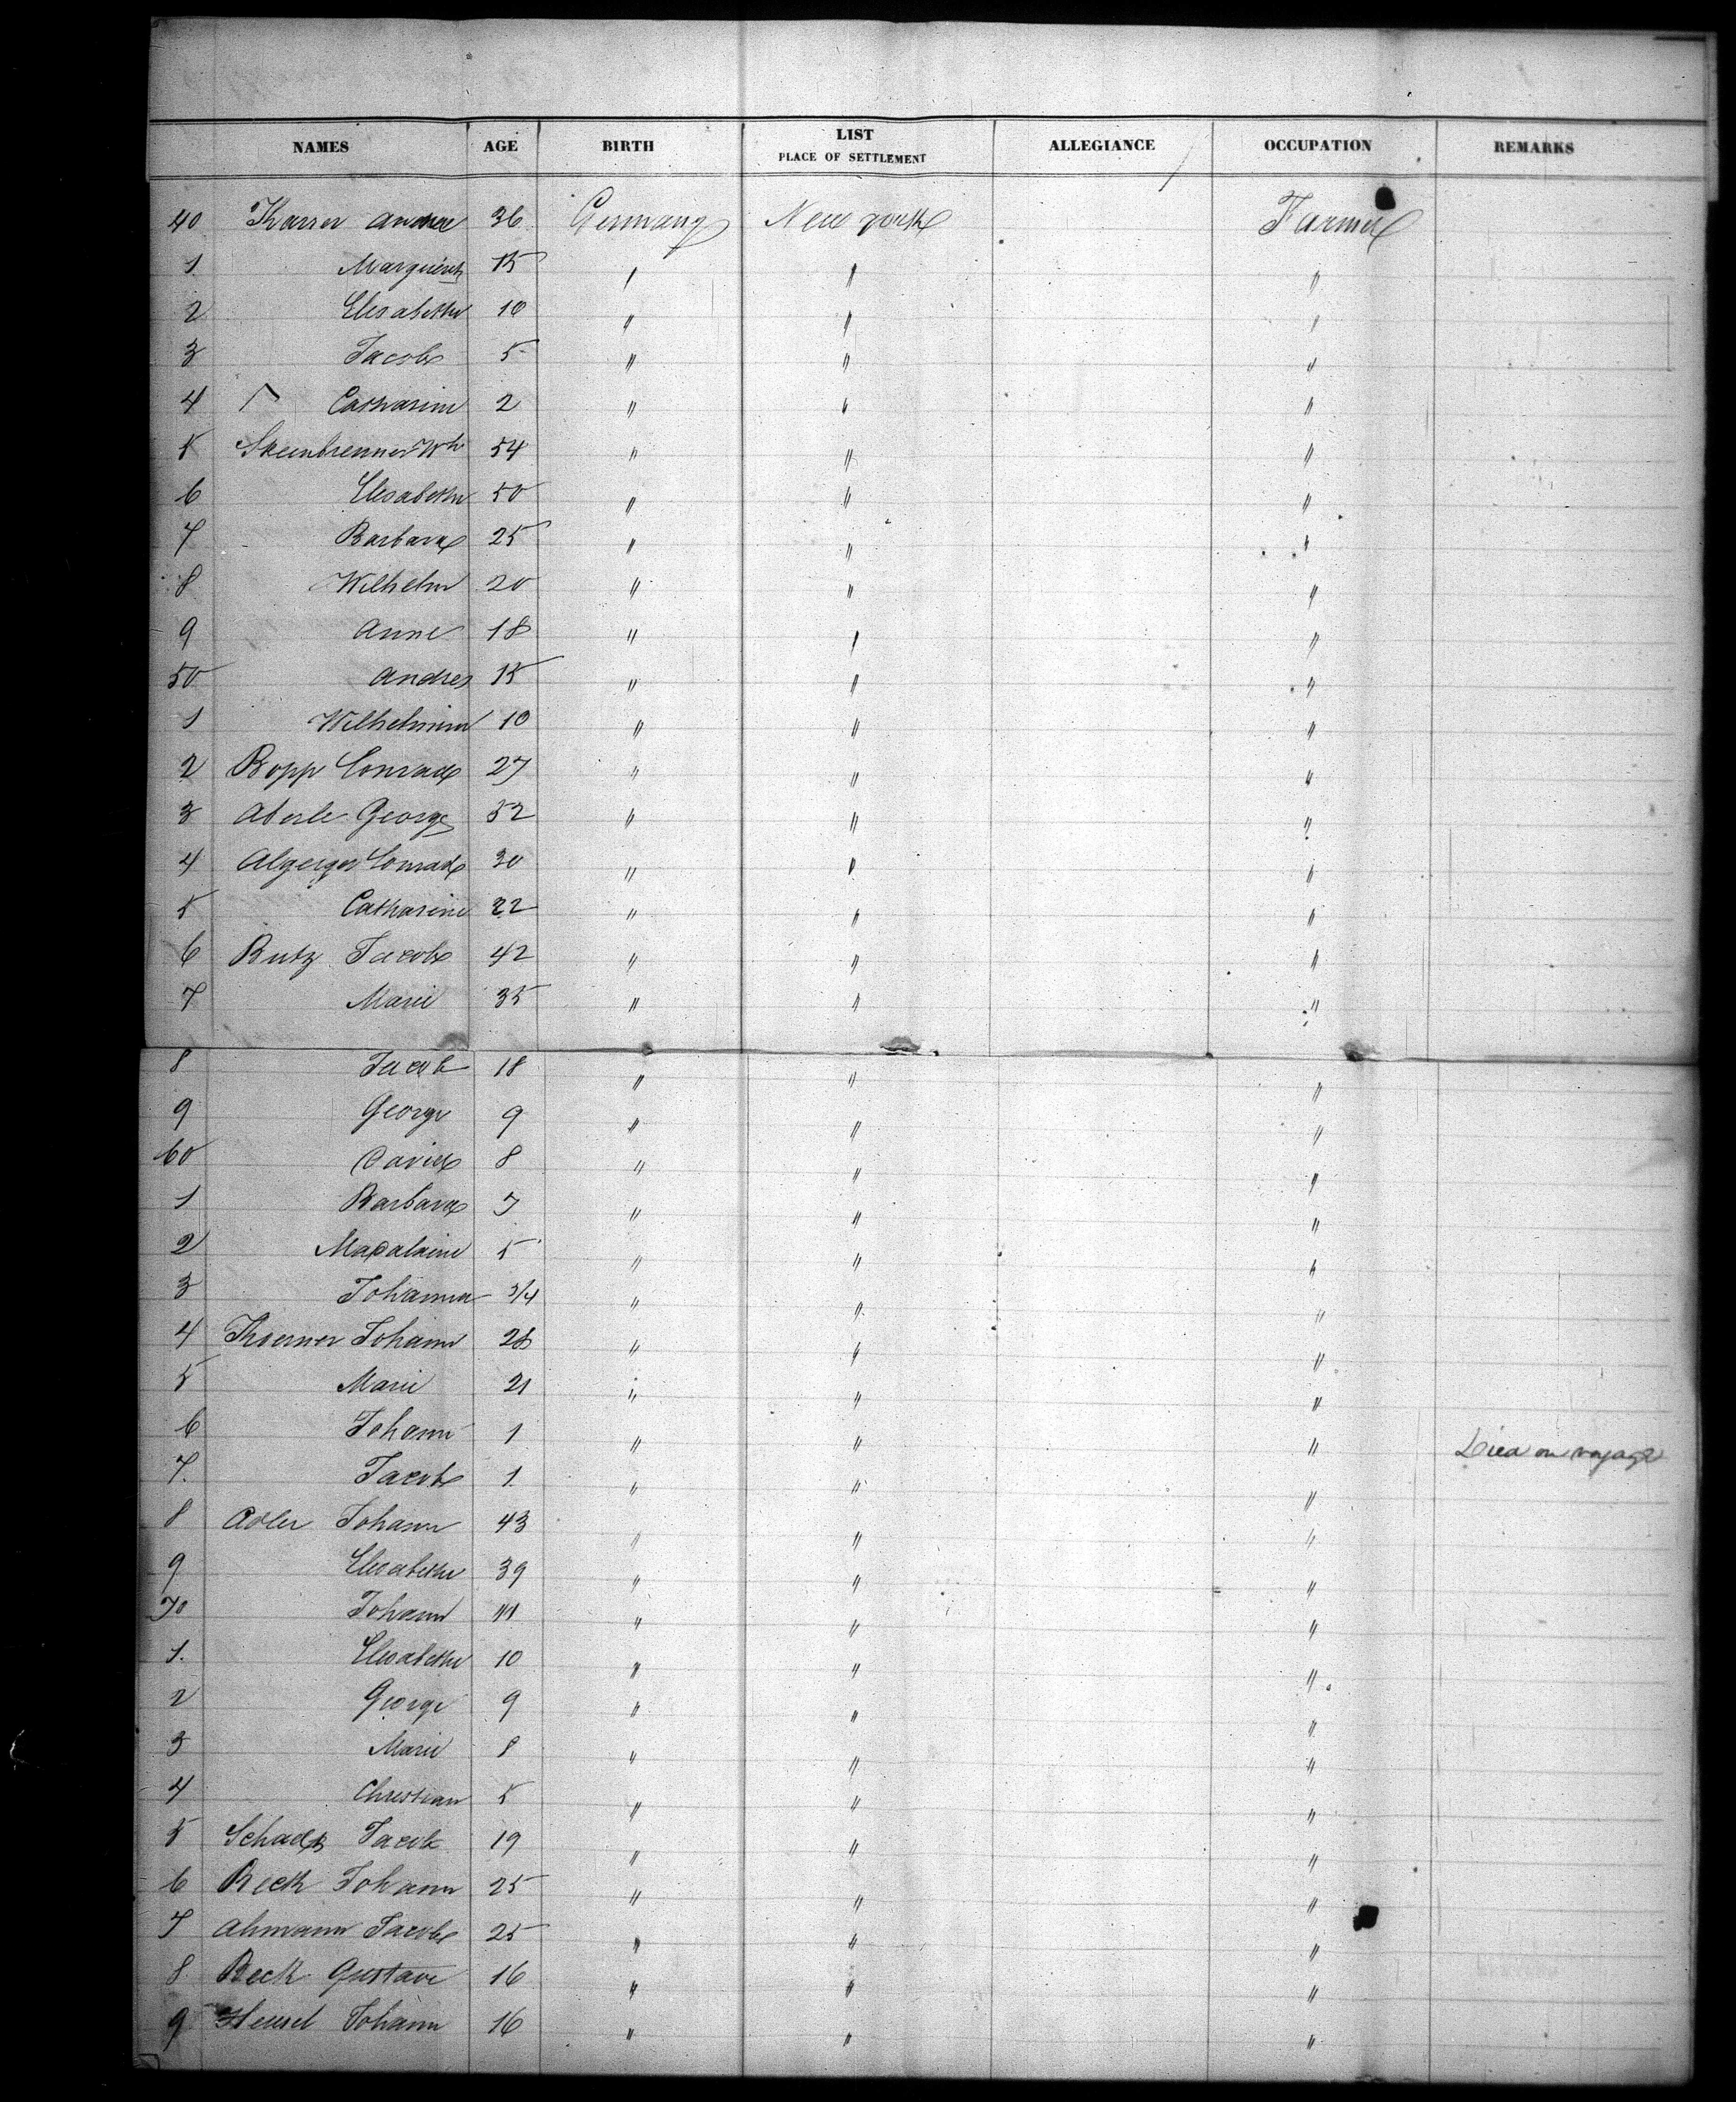 NAMES AGE BIRTH LIST PLACE OF SETTLEMENT ALLEGIANCE OCCUPATION REMARKS
40 Karrer Andrea 36 Germany New york Farmer
1 15 " " "
2 Elisabethe 10 " " "
3 Jacob 5 " " "
4 Catharine 2 " " "
5 54 " " "
6 Elisabethe 50 " " "
7 Barbara 25 " " "
8 Wilhelm 20 " " "
9 Anne 18 " " "
50 Andres 15 " " "
1 10 " " "
2 Bopp Conrad 27 " " "
3 Aberle George 52 " " "
4 Conrad 30 " " "
5 Catharine 22 " " "
6 Butz Jacob 42 " " "
7 Marie 35 " " "
8 Jacob 18 " " "
9 George 9 " " "
60 David 8 " " "
1 Barbara 7 " " "
2 Madalaine 5 " " "
3 Johanna 3/4 " " "
4 Johann 28 " " "
5 Marie 21 " " "
6 Johann 1 " " " Died on voyage
7. Jacob 1. " " "
8 Adler Johann 43 " " "
9 Elisabethe 39 " " "
70 Johann 11 " " "
1. Elisabethe 10 " " "
2 George 9 " " "
3 Marie 8 " " "
4 Christian 5 " " "
5 Jacob 19 " " "
6 Beck Johann 25 " " "
7 Ahmann Jacob 25 " " "
8 Beck Gustave 16 " " "
9 Hensel Johann 16 " " "